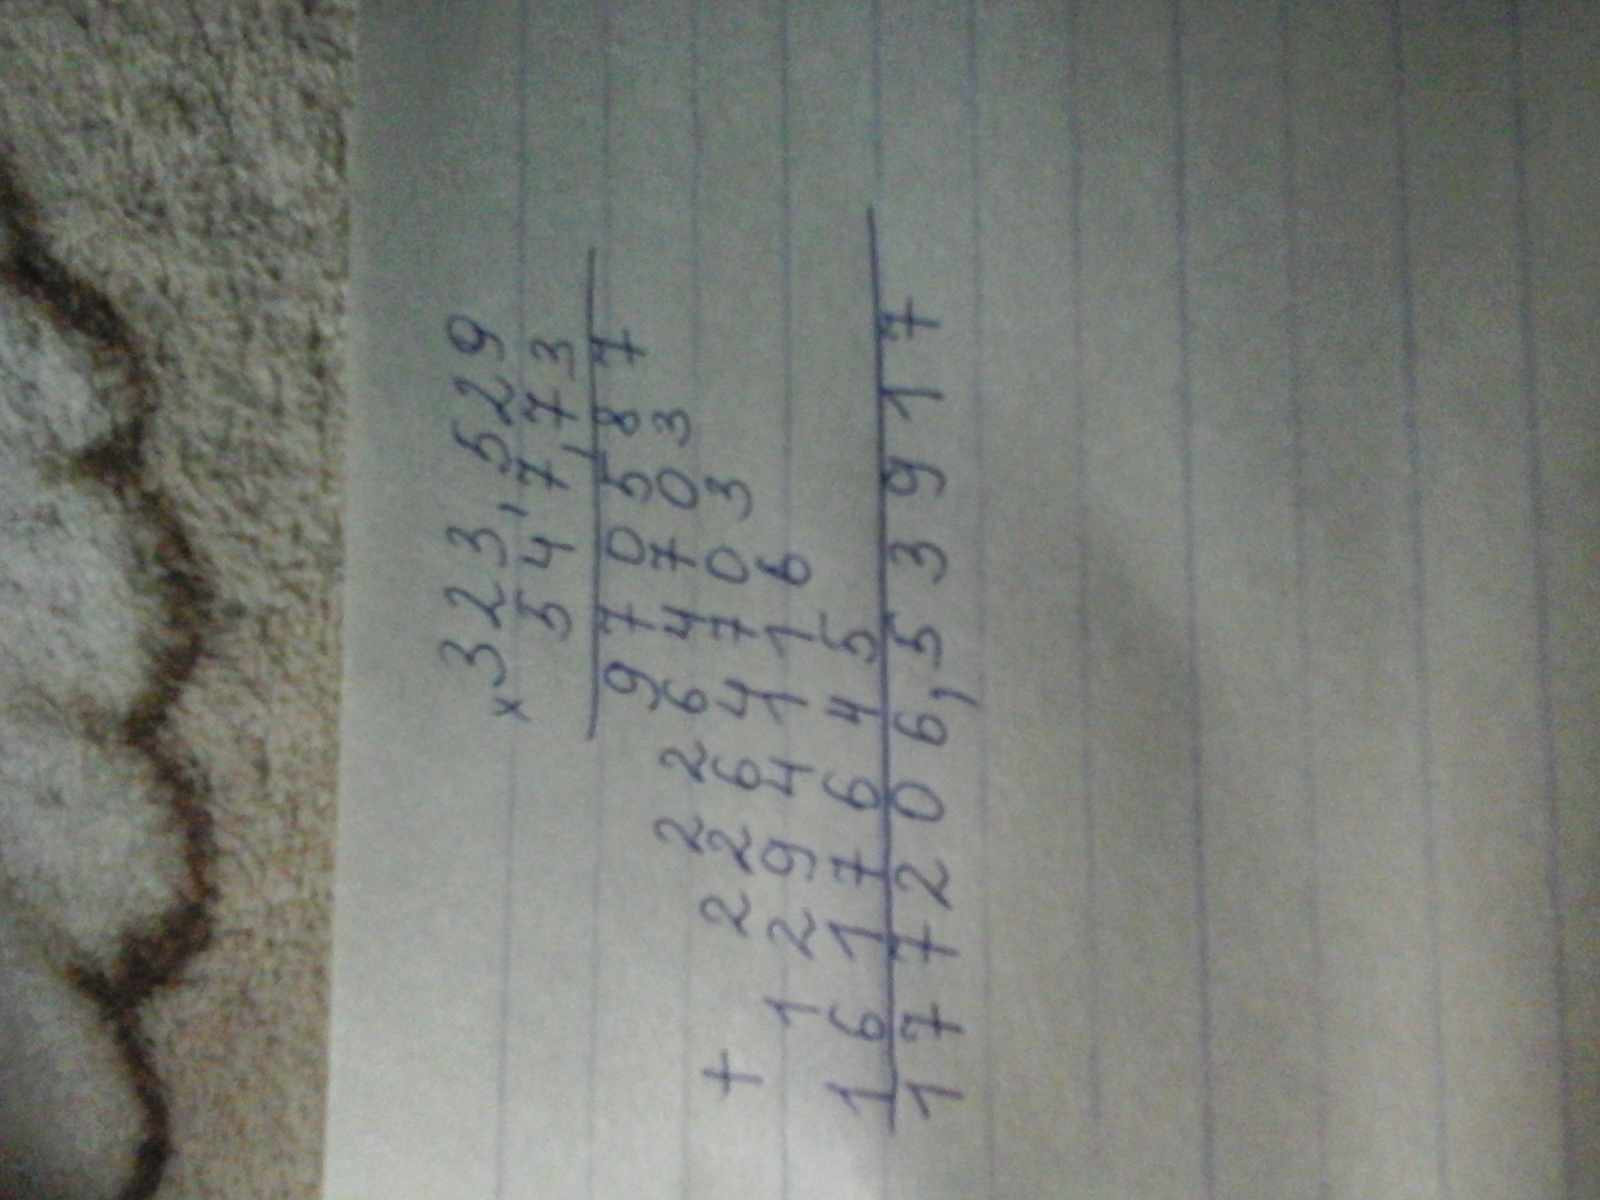 × 323,529
547,73
970587
2264703
+ 2264703
1294116
1617645
177206,53917